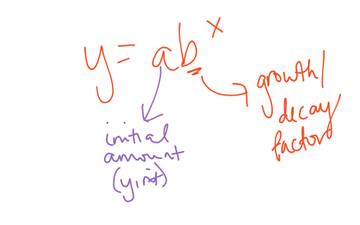 y = ab^x
growth/
decay
factor
initial
amount
(y int)